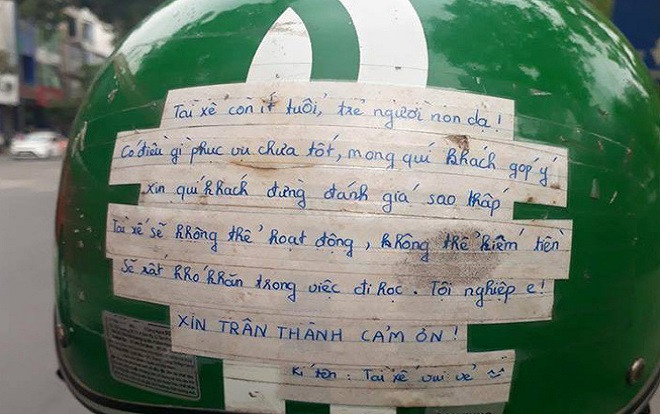 Tài xế còn ít tuổi, trẻ người non dạ!
Có điều gì phục vụ chưa tốt, mong quí khách góp ý
xin quí khách đừng đánh giá sao thấp
Tài xế sẽ không thể hoạt động, không thể kiếm tiền
Sẽ rất khó khăn trong việc đi học. Tội nghiệp e!
XIN TRÂN THÀNH CẢM ƠN!
Kí tên: Tài xế vui vẻ